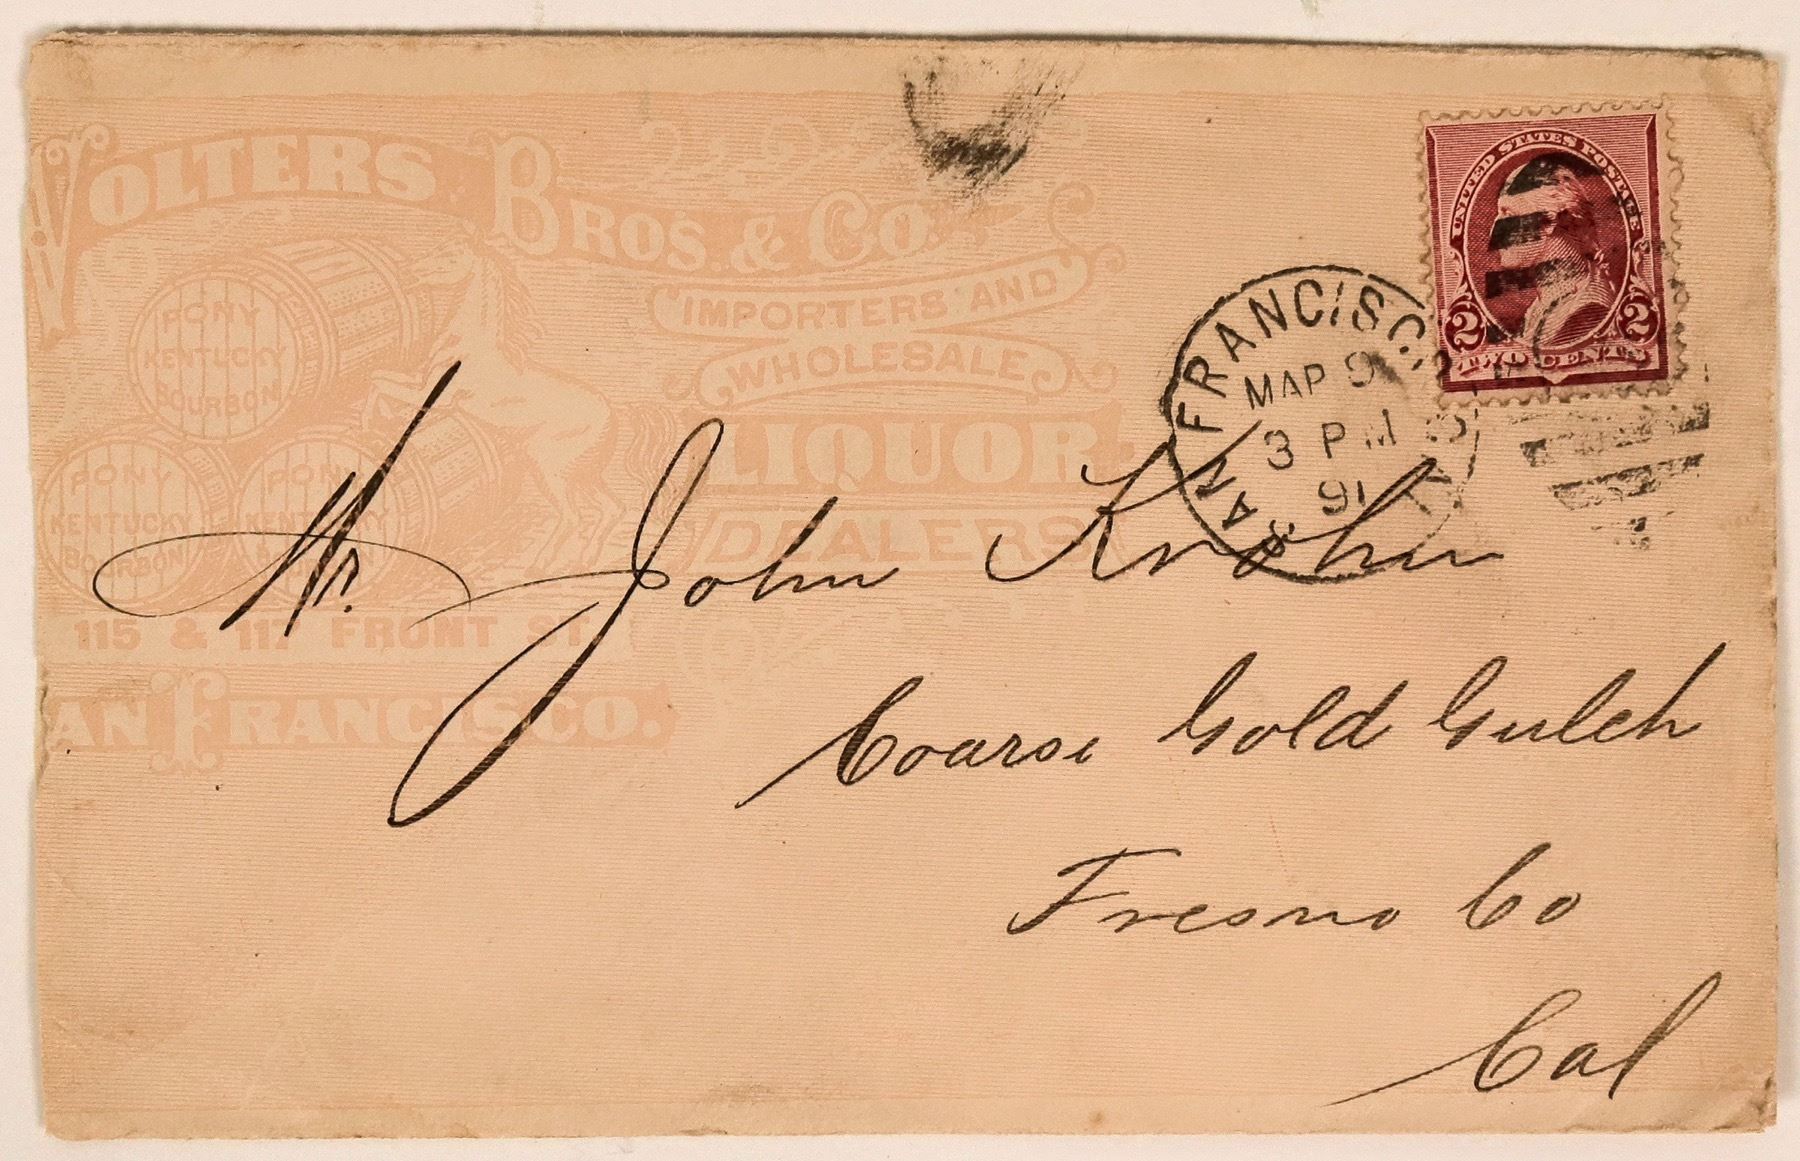 VOLTERS BROS. & CO.
IMPORTERS AND
WHOLESALE
LIQUOR
DEALERS
PONY
KENTUCKY
BOURBON
PONY
KENTUCKY
BOURBON
PONY
KENTUCKY
BOURBON
115 & 117 FRONT ST.
SAN FRANCISCO.
UNITED STATES POSTAGE
2 2
TWO CENTS
SAN FRANCISCO
MAR 9
3 PM
91
Mr. John Krohn
Coarse Gold Gulch
Fresno Co
Cal